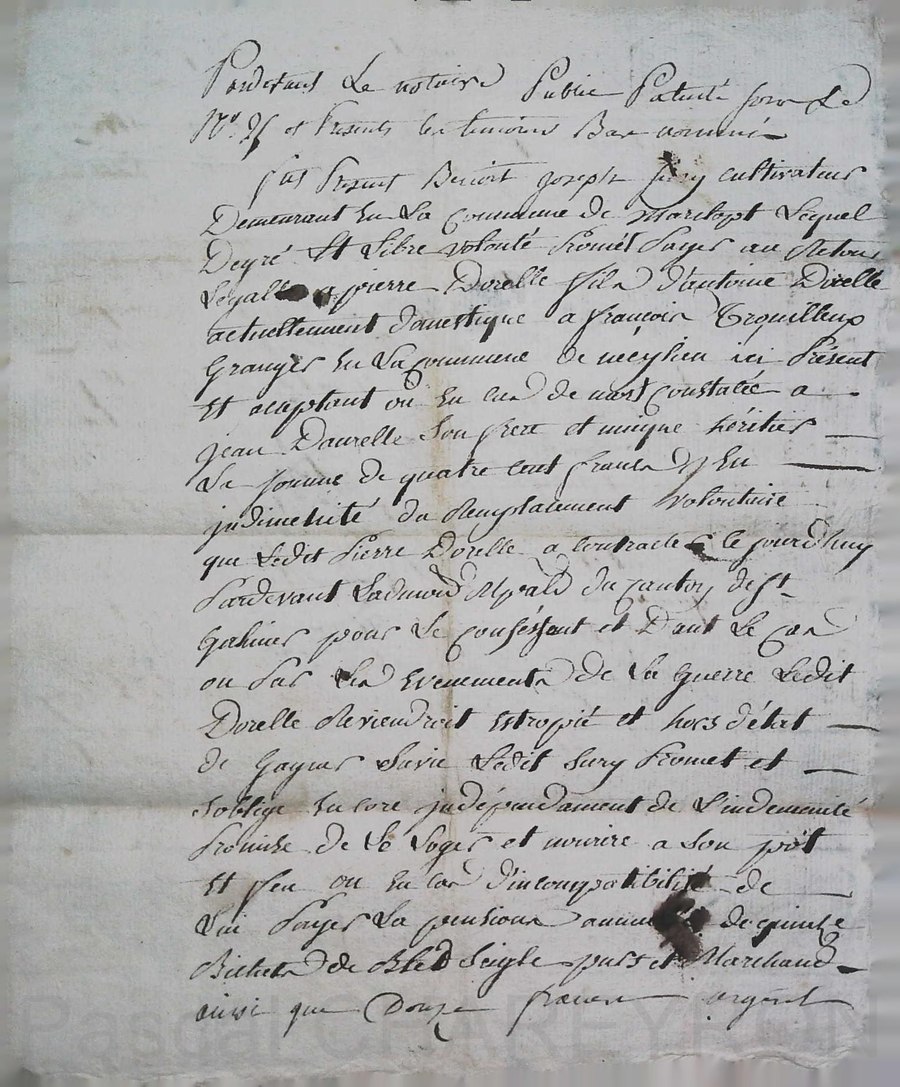 Pardevant Le notaire Public Patenté sous Le
N.º 25 et Présents les temoins Bas nommés
fut Present Benoit joseph Jury cultivateur
Demeurant En La Commune de Marclopt Lequel
De gré Et Libre volonté Promet Payer au Retour
Légal a pierre Dorelle fils d'antoine Dorelle
actuellement domestique a françois Trouilleux
Granger En La Commune de meylieu ici Présent
Et aceptant où En cas de mort constatée a
jean Daurelle Son frere et unique héritier
La somme de quatre cent francs En
jndimenité du Remplacement volontaire
que Ledit Pierre Dorelle a contracté le jourdhuy
Pardevant Ladmōn Mpale du canton de St
Galmier pour Le et Dans Le cas
ou Par Les Evenements de La Guerre Ledit
Dorelle Reviendroit Estropié et hors d'état
de Gagner Savie Ledit Jury Promet et
soblige Encore jndépendament de L'indemenité
Promise de Le Loger et nourire a Son pot
Et feu ou En cas d'incompatibilité de
Lui Payer La pension annuelle de quinze
Bichets de Bled Seigle purs et Marchand
ainsi que Douze francs argent
Pascal CHAREYRON